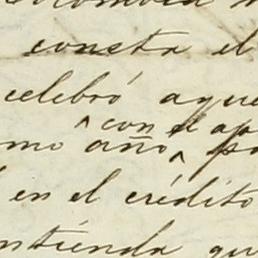 consta el
celebró aque
con el ap
mo año, po
en el crédito
ntiende que